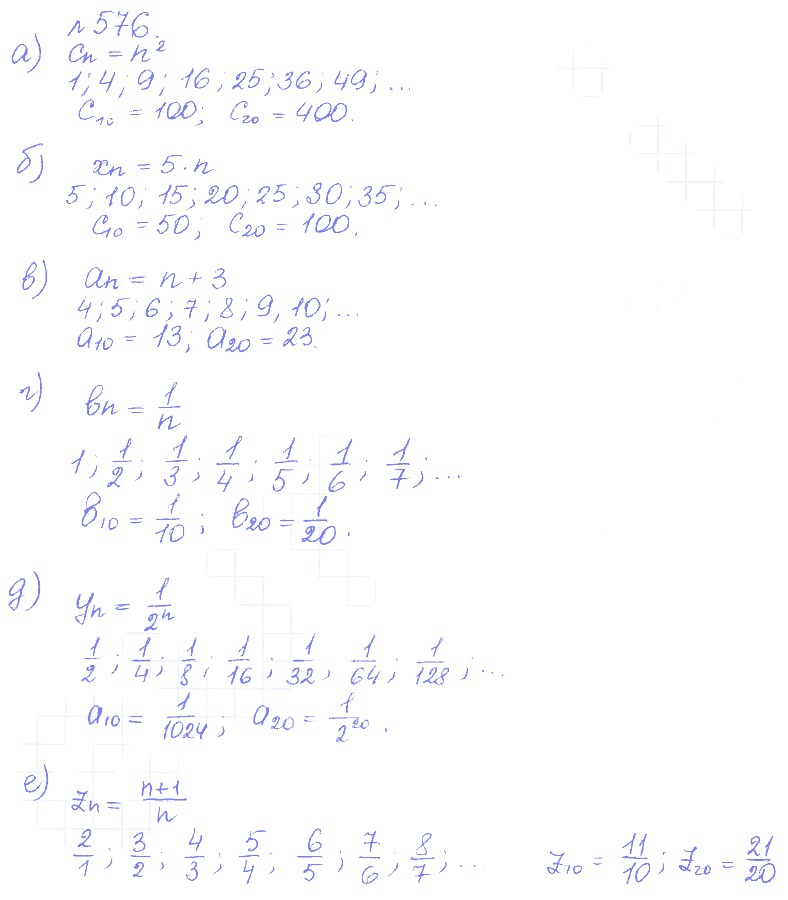 № 576.
а) Cn = n²
1; 4; 9; 16; 25; 36; 49; ...
C₁₀ = 100; C₂₀ = 400.
б) xn = 5·n
5; 10; 15; 20; 25; 30; 35; ...
C₁₀ = 50; C₂₀ = 100.
в) an = n + 3
4; 5; 6; 7; 8; 9, 10; ...
a₁₀ = 13; a₂₀ = 23.
г) вn = 1/n
1; 1/2; 1/3; 1/4; 1/5; 1/6; 1/7; ...
в₁₀ = 1/10; в₂₀ = 1/20.
д) yn = 1/2ⁿ
1/2; 1/4; 1/8; 1/16; 1/32; 1/64; 1/128; ...
a₁₀ = 1/1024; a₂₀ = 1/2²⁰.
е) zn = n+1/n
2/1; 3/2; 4/3; 5/4; 6/5; 7/6; 8/7; ... z₁₀ = 11/10; z₂₀ = 21/20